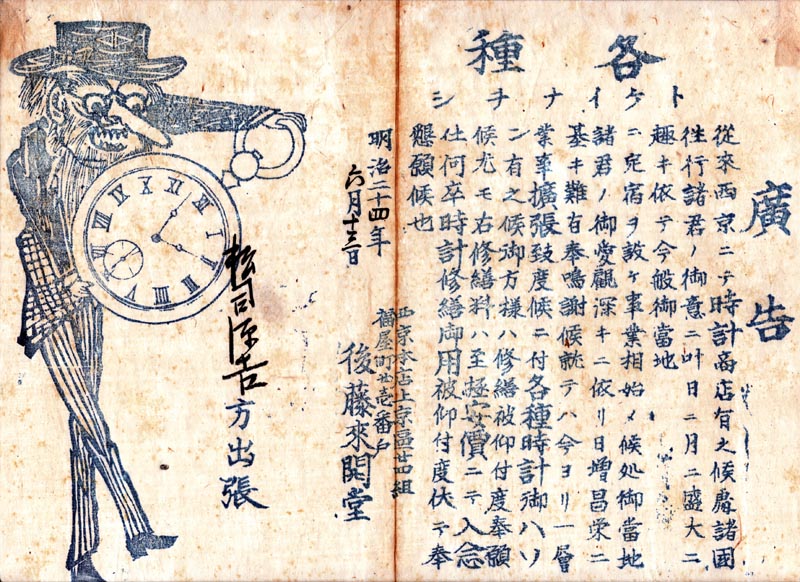 廣告
各種
トケイナヲシ
從来西京ニテ時計商店有之候處諸國
往行諸君ノ御意ニ叶日ニ月ニ盛大ニ
趣キ依テ今般御當地
ニ定宿ヲ設ケ事業相始メ候処御當地
諸君ノ御愛顧深キニ依リ日増昌栄ニ
基キ難有奉鳴謝候就テハ今ヨリ一層
業事擴張致度候ニ付各種時計御ハソ
ン有之候御方様ハ修繕被仰付度奉願
候尤モ右修繕料ハ至極安價ニテ入念
仕何卒時計修繕御用被仰付度伏テ奉
懇願候也
明治二十四年
六月十三日
西京本店上京區廿四組
福屋町廿壱番戸
後藤來開堂
方出張